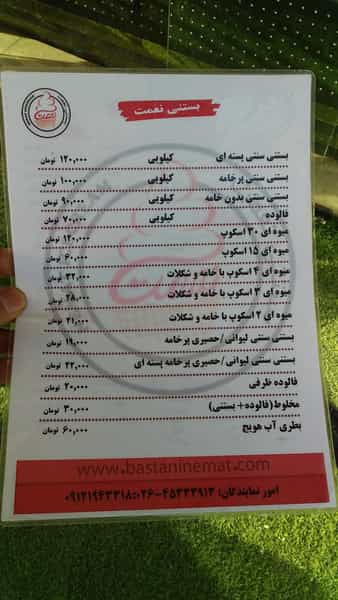 بستنی نعمت
بستنی سنتی پسته ای کیلویی ۱۲۰,۰۰۰ تومان
بستنی سنتی پرخامه کیلویی ۱۰۰,۰۰۰ تومان
بستنی سنتی بدون خامه کیلویی ۹۰,۰۰۰ تومان
فالوده کیلویی ۷۰,۰۰۰ تومان
میوه ای ۳۰ اسکوپ ۱۲۰,۰۰۰ تومان
میوه ای ۱۵ اسکوپ ۶۰,۰۰۰ تومان
میوه ای ۴ اسکوپ با خامه و شکلات ۳۲,۰۰۰ تومان
میوه ای ۳ اسکوپ با خامه و شکلات ۲۸,۰۰۰ تومان
میوه ای ۲ اسکوپ با خامه و شکلات ۲۱,۰۰۰ تومان
بستنی سنتی لیوانی/حصیری پرخامه ۱۹,۰۰۰ تومان
بستنی سنتی لیوانی/حصیری پرخامه پسته ای ۲۲,۰۰۰ تومان
فالوده ظرفی ۲۰,۰۰۰ تومان
مخلوط(فالوده+ بستنی) ۳۰,۰۰۰ تومان
بطری آب هویج ۶۰,۰۰۰ تومان
www.bastaninemat.com
امور نمایندگان: ۰۲۶-۴۵۳۳۳۹۱۳:۰۹۱۲۱۹۴۳۳۱۸